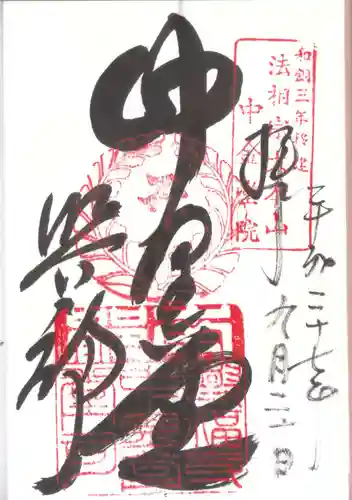 平成二十七年
九月二二日
和銅三年創建
法相宗大本山
中金堂院
拝
中金堂
興福寺